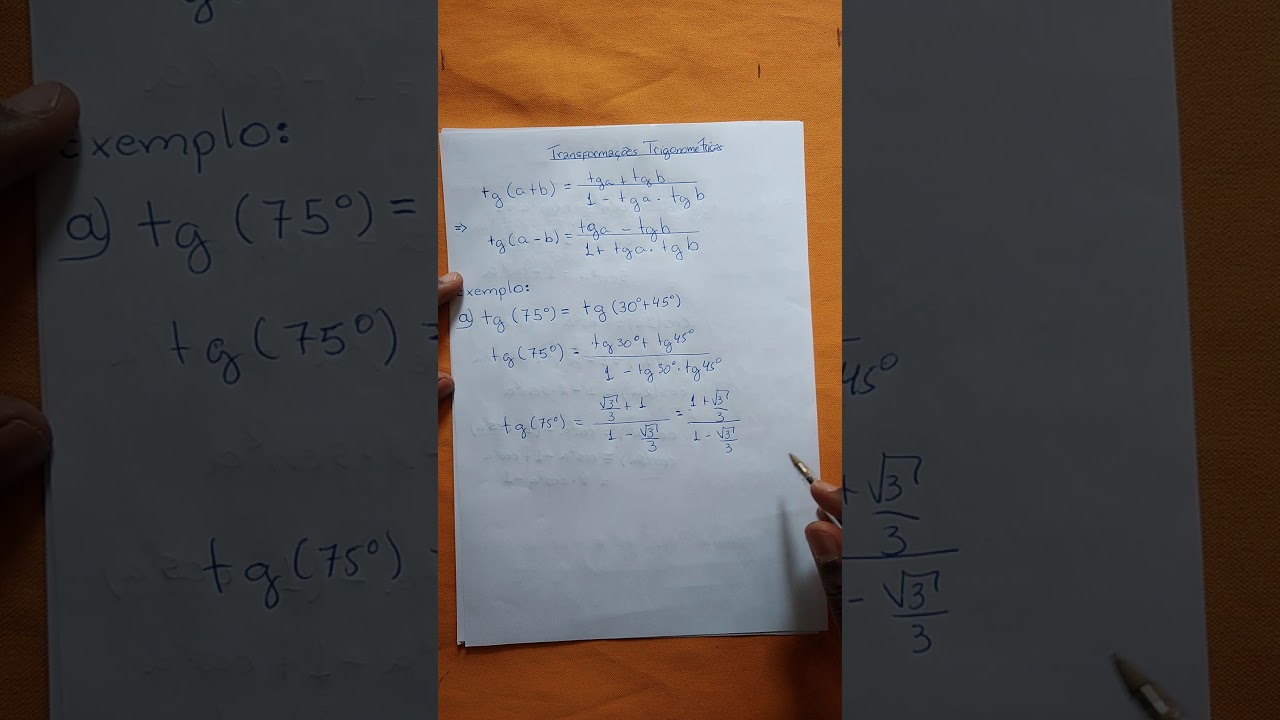 Transformações Trigonométricas
tg(a+b) = tga + tgb / 1 - tga . tgb
⇒ tg(a-b) = tga - tgb / 1 + tga . tgb
exemplo:
a) tg(75°) = tg(30°+45°)
tg(75°) = tg30° + tg45° / 1 - tg30° . tg45°
tg(75°) = √3/3 + 1 / 1 - √3/3 = 1 + √3/3 / 1 - √3/3
exemplo:
a) tg(75°) =
tg(75°)
tg(75°)
45°
+ √3/3
- √3/3